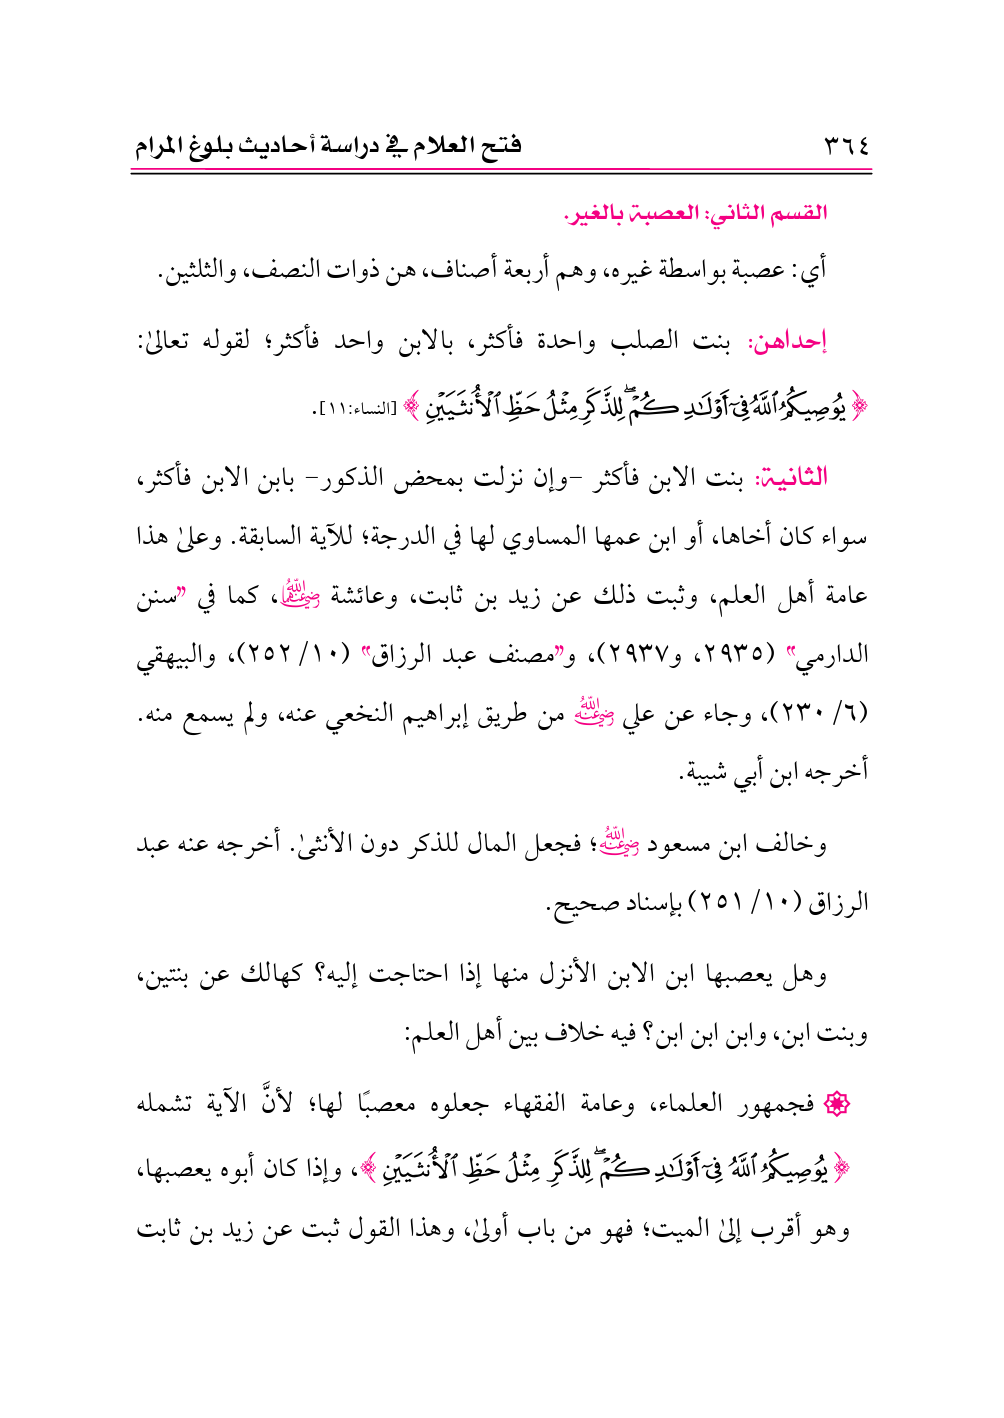 ٣٦٤ فتح العلام في دراسة أحاديث بلوغ المرام
القسم الثاني: العصبة بالغير.
أي: عصبة بواسطة غيره، وهم أربعة أصناف، هن ذوات النصف، والثلثين.
إحداهن: بنت الصلب واحدة فأكثر، بالابن واحد فأكثر؛ لقوله تعالىٰ:
﴿يُوصِيكُمُ ٱللَّهُ فِىٓ أَوْلَـٰدِكُمْ ۖ لِلذَّكَرِ مِثْلُ حَظِّ ٱلْأُنثَيَيْنِ﴾ [النساء:١١].
الثانية: بنت الابن فأكثر -وإن نزلت بمحض الذكور- بابن الابن فأكثر،
سواء كان أخاها، أو ابن عمها المساوي لها في الدرجة؛ للآية السابقة. وعلىٰ هذا
عامة أهل العلم، وثبت ذلك عن زيد بن ثابت، وعائشة رضي الله عنهما، كما في "سنن
الدارمي" (٢٩٣٥، و٢٩٣٧)، و"مصنف عبد الرزاق" (١٠/ ٢٥٢)، والبيهقي
(٦/ ٢٣٠)، وجاء عن علي رضي الله عنه من طريق إبراهيم النخعي عنه، ولم يسمع منه.
أخرجه ابن أبي شيبة.
وخالف ابن مسعود رضي الله عنه؛ فجعل المال للذكر دون الأنثىٰ. أخرجه عنه عبد
الرزاق (١٠/ ٢٥١) بإسناد صحيح.
وهل يعصبها ابن الابن الأنزل منها إذا احتاجت إليه؟ كهالك عن بنتين،
وبنت ابن، وابن ابن ابن؟ فيه خلاف بين أهل العلم:
فجمهور العلماء، وعامة الفقهاء جعلوه معصبًا لها؛ لأنَّ الآية تشمله
﴿يُوصِيكُمُ ٱللَّهُ فِىٓ أَوْلَـٰدِكُمْ ۖ لِلذَّكَرِ مِثْلُ حَظِّ ٱلْأُنثَيَيْنِ﴾، وإذا كان أبوه يعصبها،
وهو أقرب إلىٰ الميت؛ فهو من باب أولىٰ، وهذا القول ثبت عن زيد بن ثابت